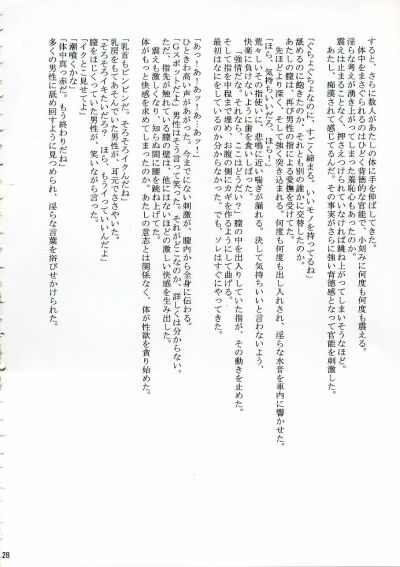 すると、さらに数人があたしの体に手を伸ばしてきた。
体中をまさぐられるのはひどく背徳的な官能で、小刻みに何度も何度も震える。
淫らな考えが湧き上がってしまった羞恥心もあったのか、
震えは止まることなく、押さえつけられていなければ跳ね上がってしまいそうなほど。
あたし、痴漢されて感じてるんだ。その事実がさらに強い背徳感となって官能を刺激した。
「ぐちょぐちょなのに、すごく締まる。いいモノを持ってるね」
舐めるのに飽きたのか、それとも別の誰かに交替したのか。
あたしの膣は、再び男性の指による愛撫を受けていた。
先ほどより深く、そして強く突き込まれる。何度も何度も出し入れされ、淫らな水音を車内に響かせた。
「ほら、気持ちいいだろ、ほら！」
荒々しいその指使いに、悲鳴に近い喘ぎが漏れる。決して気持ちいいと言わないよう、
快楽に負けないように歯を食いしばった。
「強情だなぁ。じゃあここはどうだい？」膣の中を出入りしていた指が、その動きを止めた。
そして指を中程まで埋め、お腹の側にカギを作るようにして曲げる。
最初はなにをしているのか分からなかった。でも、ソレはすぐにやってきた。
「あっ！あ！あッ！あ、あッ！」
ひときわ高い声があがった。今までにない刺激が、膣内から全身に伝わる。
「Gスポットだよ」男性はそう言って笑った。それがどこなのか、詳しくは分からない。
ただ、指先が触れている膣の壁は、他にはないほどの激しい快感を生み出した。
震えも激しくなり、知らぬ間に腰を跳ね上げてた。
体がもっと快感を求めてしまったのか。あたしの意志とは関係なく、体が性欲を貪り始めた。
「乳首もビンビンだ。そろそろイクんだね」
乳房をもてあそんでいた男性が、耳元でささやいた。
「そろそろイキたいだろ？ ほら、もうイっていいんだよ」
膣をほじくっていた男性が、笑いながら言った。
「イクとこ見せてよ」
「潮噴くかな」
「体中真っ赤だ。もう終わりだね」
多くの男性に舐め回すように見つめられ、淫らな言葉を浴びせかけられた。
28